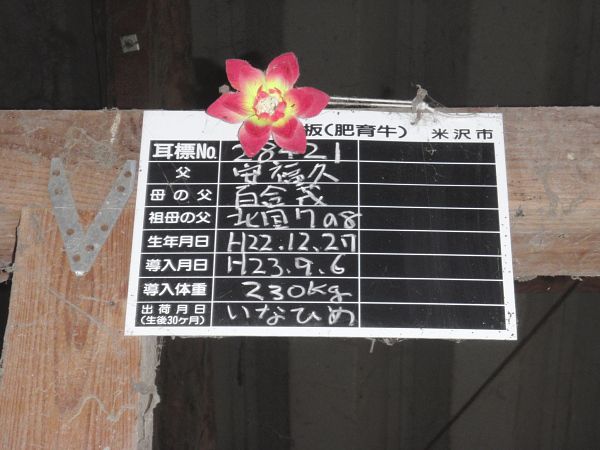 板(肥育牛) 米沢市
耳標No. 28421
父 安福久
母の父 百合茂
祖母の父 北国7の8
生年月日 H22.12.27
導入月日 H23.9.6
導入体重 230kg
出荷月日 いなひめ
(生後30ケ月)